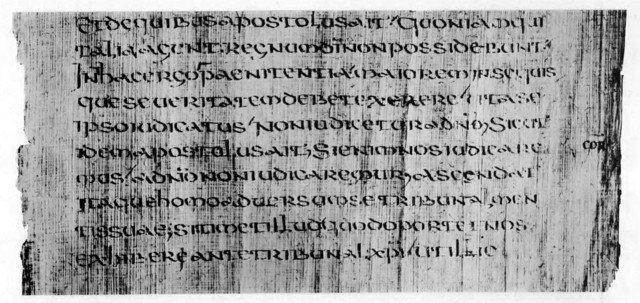 etdequibusapostolusait· quoniamqui
taliaagunt· regnumdinonpossidebunt·
inhacergopaenitentiamaioreminsequis
queseueritatemdebetexerere· utase
ipsoiudicatus· noniudiceturadno· sicut
idemapostolusait· sienimnosiudicare
cor
mus· adnononiudicaremur· ascendat
itaquehomoaduersumsetribunalmen
tissuae· sitimetilludquodoportetnos
exhibereantetribunalxpi· utillic